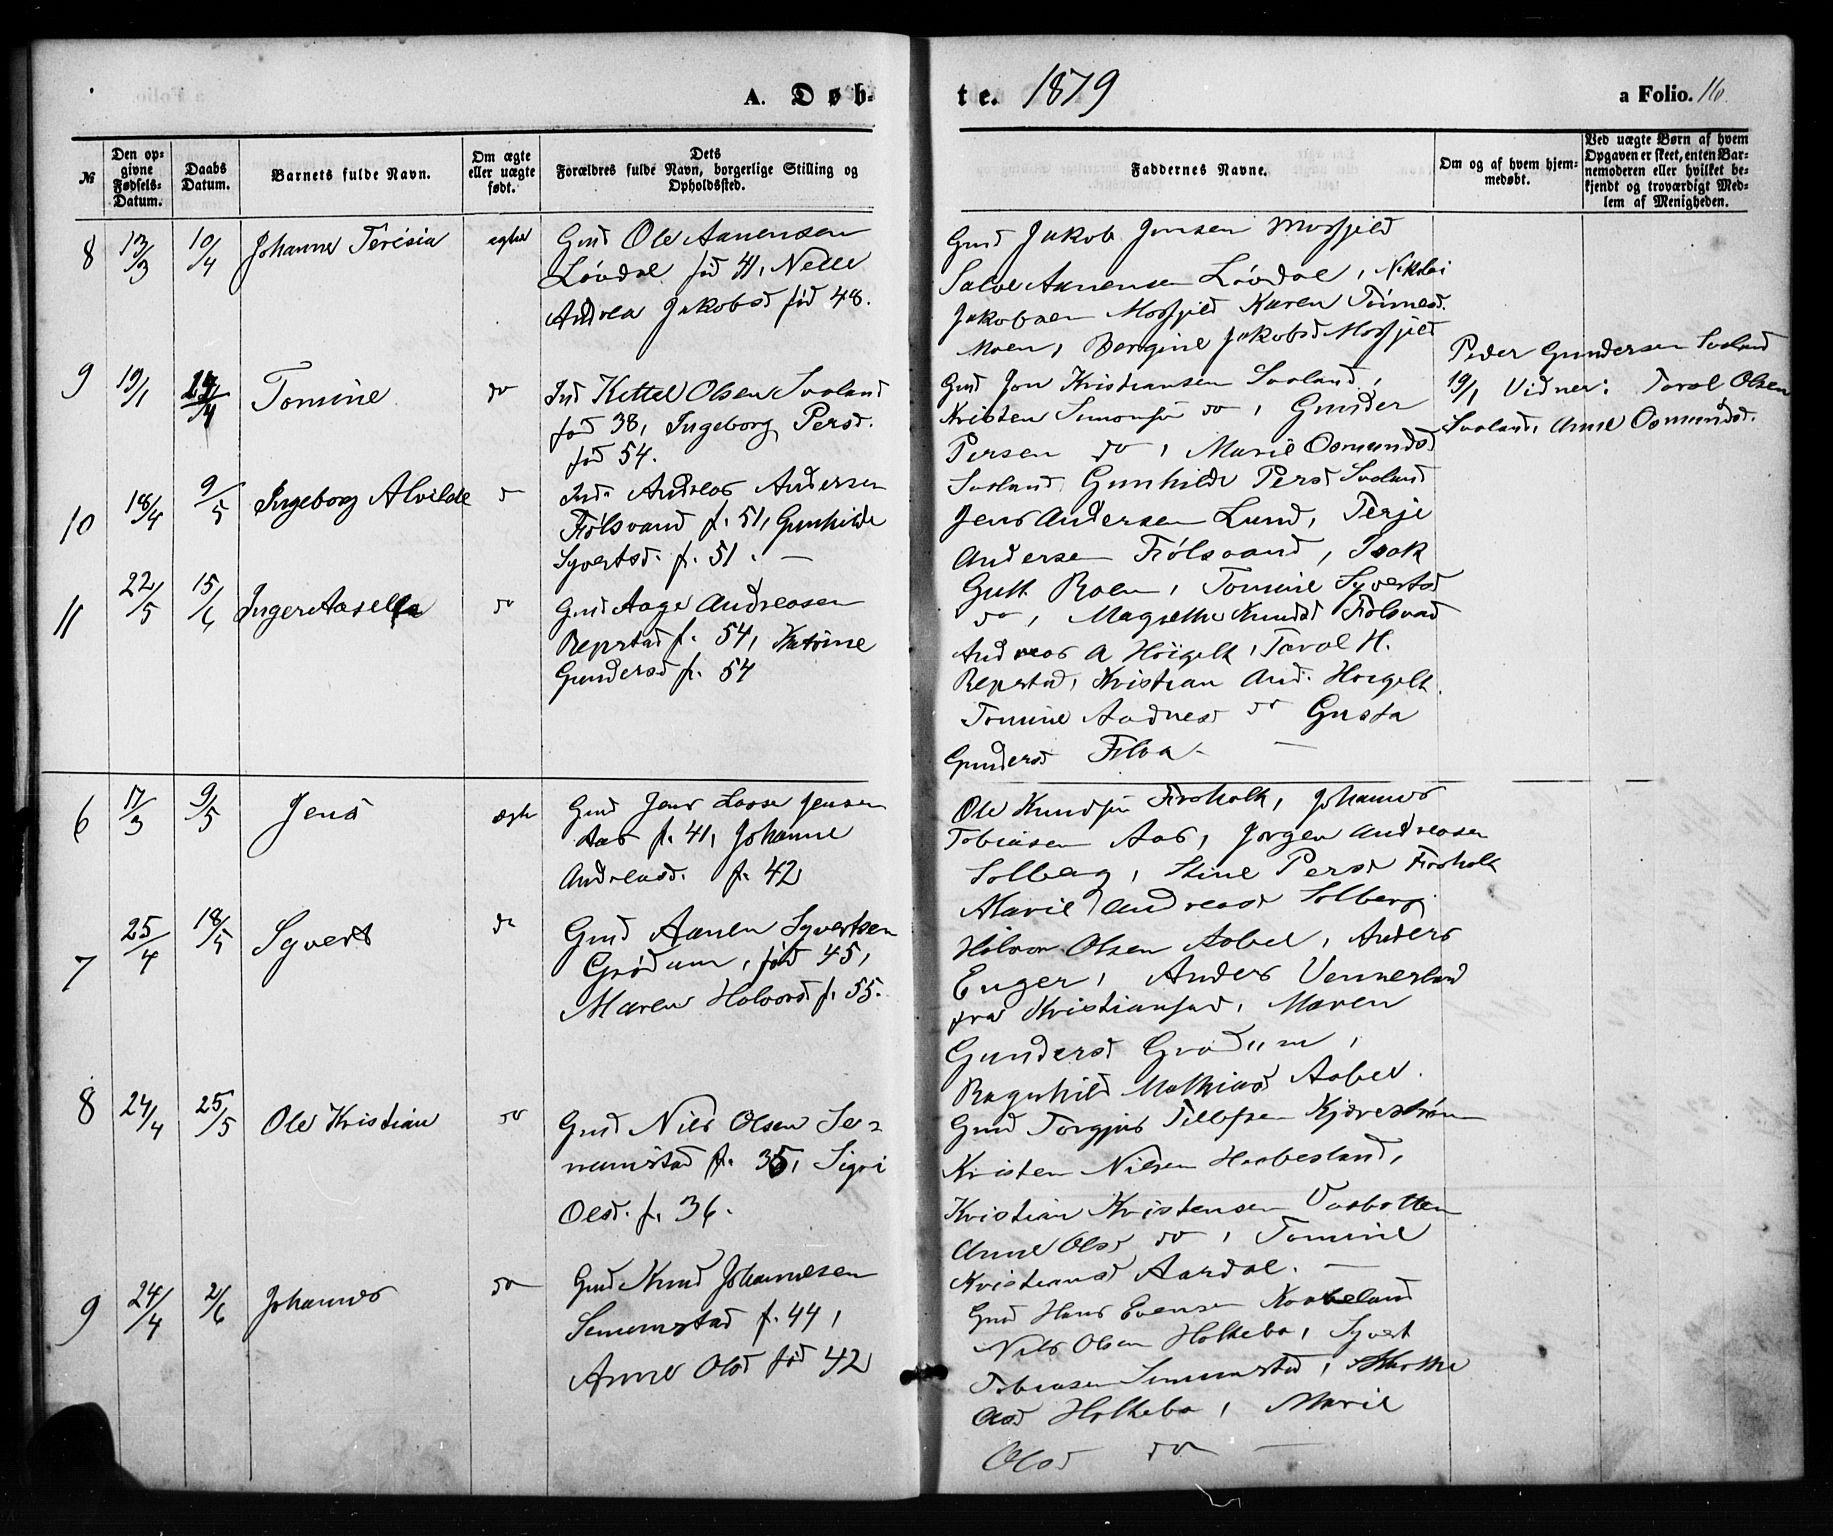 A. Døb-
te. 1879
a Folio. 16.
№
Den op-
givne
Fødsels-
Datum.
Daabs
Datum.
Barnets fulde Navn.
Om ægte
eller uægte
født.
Dets
Forældres fulde Navn, borgerlige Stilling og
Opholdssted.
Faddernes Navne.
Om og af hvem hjem-
medøbt.
Ved uægte Børn af hvem
Opgaven er skeet, enten Bar-
nemoderen eller hvilket be-
kjendt og troværdigt Med-
lem af Menigheden.
8 13/3 10/4 Johanne Terisia egte
Gmd Ole Aanensen
Løvdal fød 41, Nelle
Andrea Jakobsd fød 48.
Gmd Jakob Jensen Mosfjeld
Salve Aanensen Løvdal, Nikolai
Jakobsen Mosfjeld Karen Tønnesd.
Moen, Bergine Jakobsd Mosfjeld
9 19/1 14/4 Tomine do
Ind Kettel Olsen Svaland
fød 38, Ingeborg Persd.
fød 54.
Gmd Jon Kristiansen Svaland,
Kristen Simonsen do, Gunder
Persen do, Marie Osmundsd
Svaland Gunhilde Persd Svaland
Peder Gundersen Svaland
19/1 Vidner: Tarol Olsen
Svaland, Anne Osmundsd.
10 18/4 9/5 Ingeborg Alvilde d
Ind. Andreas Andersen
Fiølsvand f. 51, Gunhilde
Syvertsd. f. 51. —
Jens Andersen Lund, Terje
Andersen Fiølsvand, Isak
Gutt. Roen, Tomine Syvertsd
do, Magrethe Knudsd Fiølsvad
11 22/5 15/6 Inger Aasella do
Gmd Aage Andreasen
Repstad f. 54, Katrine
Gundersd f. 54
Andreas A Høigelt, Tarol H.
Repstad, Kristian And. Høigelt.
Tomine Aadnesd do Gusta
Gundersd Filva —
6 17/3 9/5 Jens ægte
Gmd Jens Lasse Jensen
Aas f. 41, Johanne
Andreasd. f. 42
Ole Knudsen Fiskolt, Johannes
Tobiasen Aas, Jørgen Andreasen
Solberg, Stine Persd
Marie Andreasd Solberg
7 25/4 18/5 Syvert do
Gmd Aanen Syvertsen
Grødum, fød 45,
Maren Halvorsd f. 55.
Halvor Olsen Aabel, Anders
Enger, Anders Vennesland
fra Kristiansad, Maren
Gundersd Grødum,
Ragnhild Mathiasd Aabel.
8 24/4 25/5 Ole Kristian do
Gmd Nils Olsen Se-
numstad f. 35, Sigri
Olsd. f. 36.
Gmd Torgjus Tellefsen Kjørestrøm
Kristen Nilsen Haabesland,
Kristian Kristensen Vasbotten
Anne Olsd do, Tomine
Kristiansd Aardal. —
9 24/4 2/6 Johannes do
Gmd Knud Johannesen
Senumstad f. 44,
Anne Olsd fød 42
Gmd Hans Evensen Kaabeland
Nils Olsen Holtebo, Syvert
Tobiasen Senumstad,
Olsd Holtebo, Marie
Olsd do —